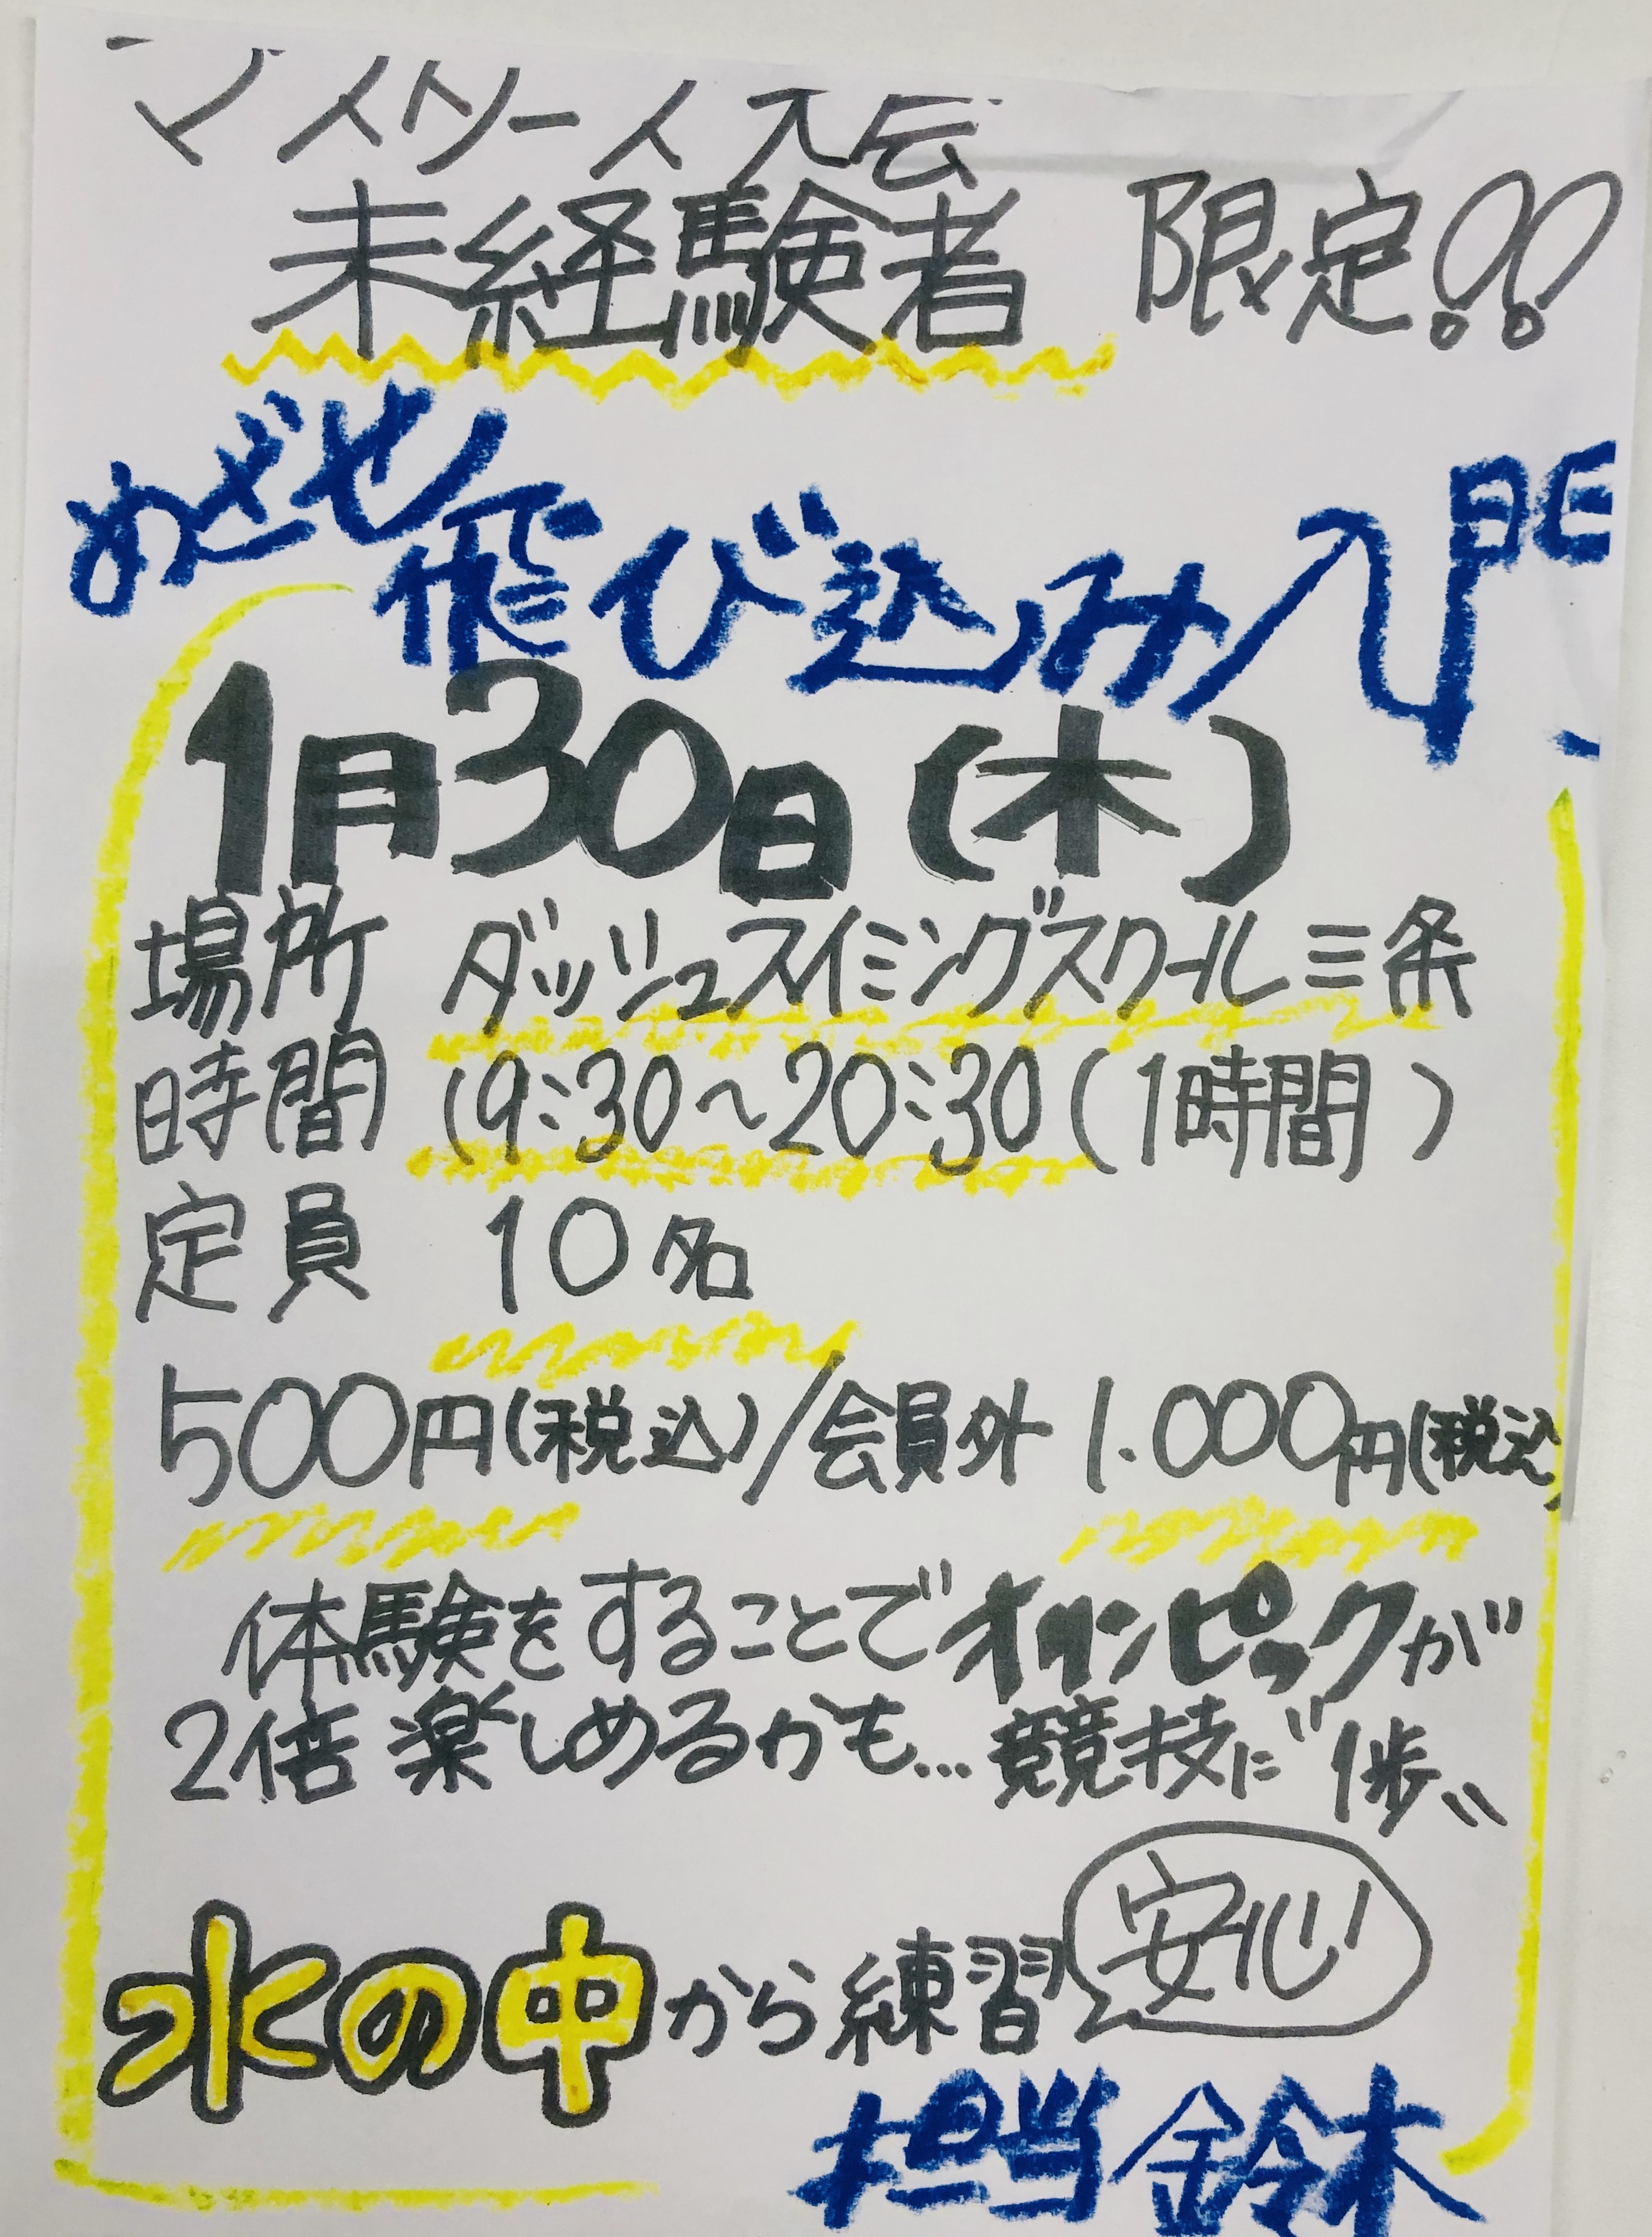 マスターズ大会
未経験者 限定!!
めざせ
飛び込み入門
1月30日(木)
場所 ダッシュスイミングスクール三条
時間 19:30~20:30(1時間)
定員 10名
500円(税込)/会員外 1.000円(税込)
体験をすることでオリンピックが
2倍楽しめるかも...競技に"1歩"
安心
水の中から練習
担当 鈴木